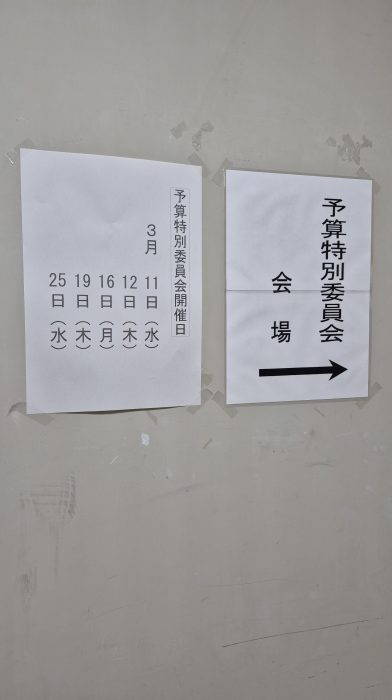 予算特別委員会開催日
3月 11日(水)
12日(木)
16日(月)
19日(木)
25日(水)
予算特別委員会
会場